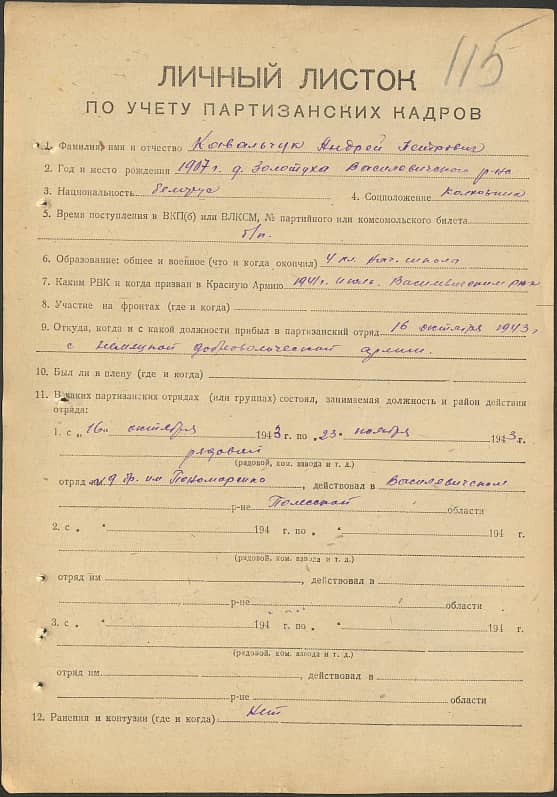 115
ЛИЧНЫЙ ЛИСТОК
ПО УЧЕТУ ПАРТИЗАНСКИХ КАДРОВ
1. Фамилия, имя и отчество Ковальчук Андрей Петрович
2. Год и место рождения 1907 г. д. Золотуха Василевичского р-на
3. Национальность белорус 4. Соцположение Колхозник
5. Время поступления в ВКП(б) или ВЛКСМ, № партийного или комсомольского билета
б/п.
6. Образование: общее и военное (что и когда окончил) 4 кл. нач. школа
7. Каким РВК и когда призван в Красную Армию 1941 г. июль. Василевичским РВК
8. Участие на фронтах (где и когда)
9. Откуда, когда и с какой должности прибыл в партизанский отряд 16 октября 1943,
с немецкой добровольческой армии.
10. Был ли в плену (где и когда)
11. В каких партизанских отрядах (или группах) состоял, занимаемая должность и район действия
отряда:
1. с „16" октября 1943 г. по „23" ноября 1943 г.
рядовой
(рядовой, ком. взвода и т. д.)
отряд им бр. им Пономаренко, действовал в Василевичском
р-не Полесской области
2. с „ " 194 г. по „ " 194 г.
(рядовой, ком. взвода и т. д.)
отряд им , действовал в
р-не области
3. с „ " 194 г. по „ " 194 г.
(рядовой, ком. взвода и т. д.)
отряд им. , действовал в
р-не области
12. Ранения и контузии (где и когда) Нет